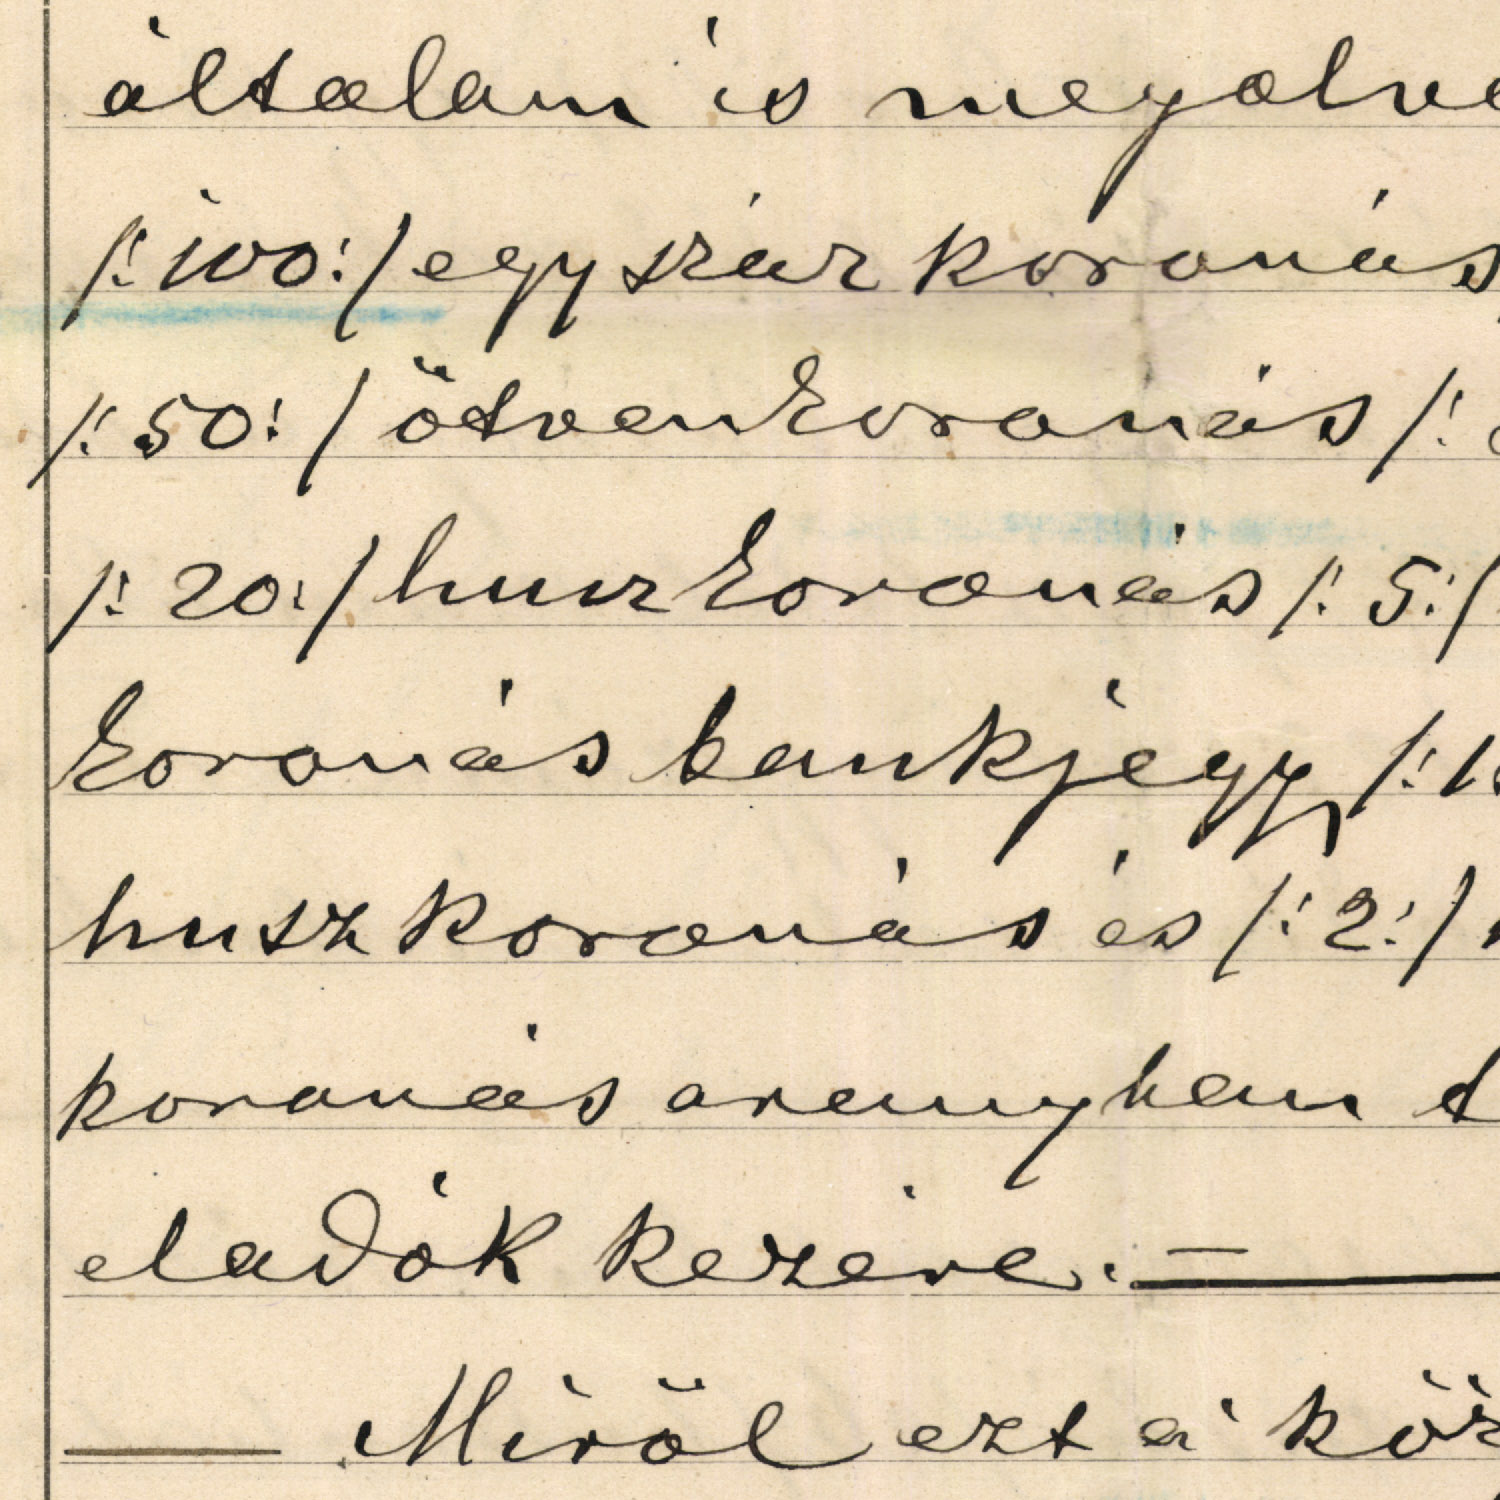 általam is megolva
/: 100 :/ egy száz koronás
/: 50 :/ ötven koronás /:
/: 20 :/ husz koronás /: 5 :/
koronás bankjegy, /: 1
husz koronás és /: 2 :/
koronás aranyban
eladók kezére. —
— Miröl ezt a köz